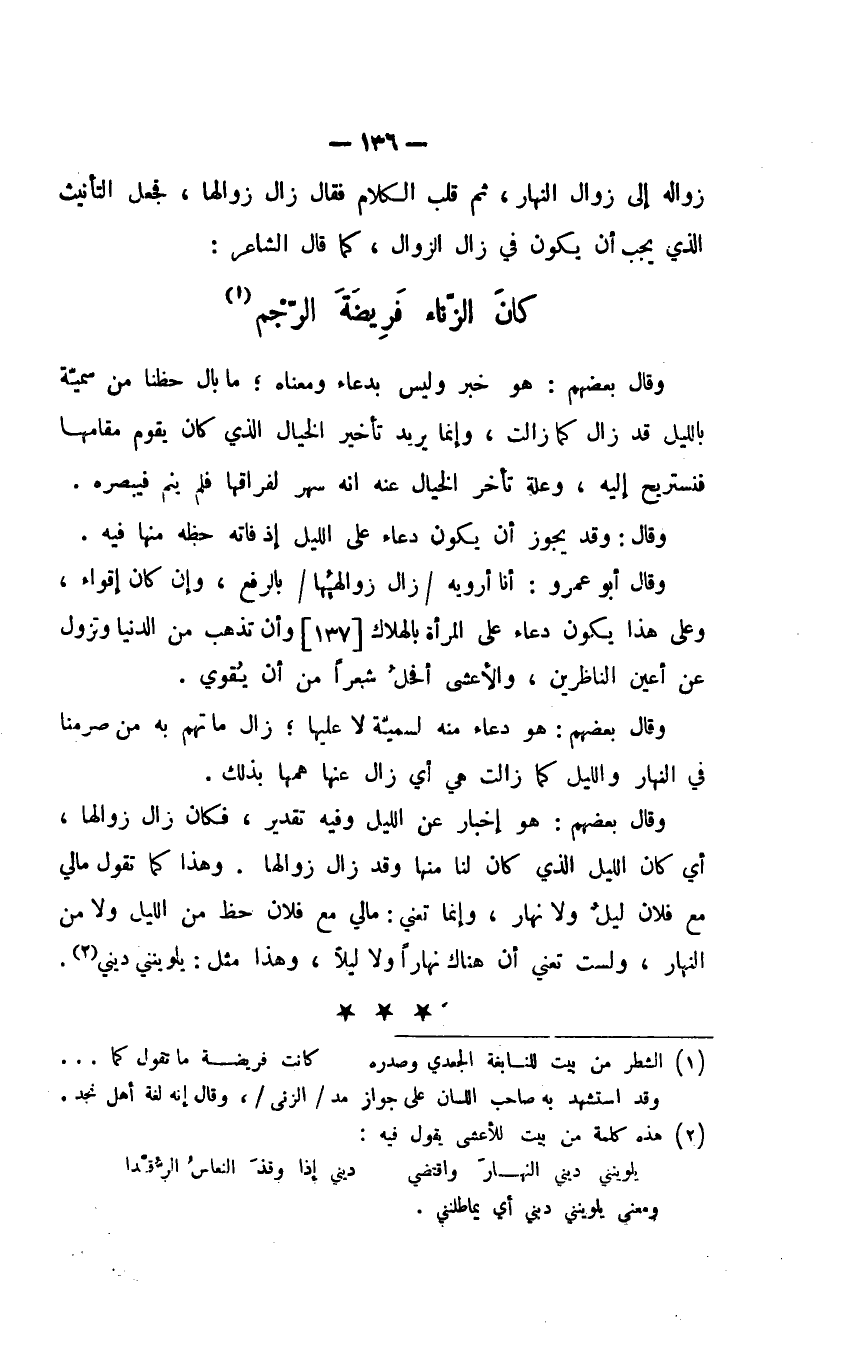 — ١٣٦ —
زواله إلى زوال النهار ، ثم قلب الكلام فقال زال زوالها ، فجعل التأنيث
الذي يجب أن يكون في زال الزوال ، كما قال الشاعر :
كانَ الزّناء فَرِيضَةَ الرّجم (١)
وقال بعضهم : هو خبر وليس بدعاء ومعناه ؛ ما بال حظنا من سميّة
بالليل قد زال كما زالت ، وإنما يريد تأخير الخيال الذي كان يقوم مقامها
فنستريح إليه ، وعلة تأخر الخيال عنه انه سهر لفراقها فلم ينم فيبصره .
وقال : وقد يجوز أن يكون دعاء على الليل إذ فاته حظه منها فيه .
وقال أبو عمرو : أنا أرويه / زال زوالهُا / بالرفع ، وإن كان إقواء ،
وعلى هذا يكون دعاء على المرأة بالهلاك [١٣٧] وأن تذهب من الدنيا وتزول
عن أعين الناظرين ، والأعشى أفحلُ شعراً من أن يُقوي .
وقال بعضهم : هو دعاء منه لسميّة لا عليها ؛ زال ما تهم به من صرمنا
في النهار والليل كما زالت هي أي زال عنها همها بذلك .
وقال بعضهم : هو إخبار عن الليل وفيه تقدير ، فكان زال زوالها ،
أي كان الليل الذي كان لنا منها وقد زال زوالها . وهذا كما تقول مالي
مع فلان ليلٌ ولا نهار ، وإنما تعني : مالي مع فلان حظ من الليل ولا من
النهار ، ولست تعني أن هناك نهاراً ولا ليلاً ، وهذا مثل : يلوينني ديني (٢) .
★ ★ ★
(١) الشطر من بيت للنابغة الجعدي وصدره كانت فريضة ما تقول كما ...
وقد استشهد به صاحب اللسان على جواز مد / الزنى / ، وقال إنه لغة أهل نجد .
(٢) هذه كلمة من بيت للأعشى يقول فيه :
يلوينني ديني النهارَ واقتضي ديني إذا وقذَ النعاسُ الرقّدا
ومعنى يلوينني ديني أي يماطلنني .